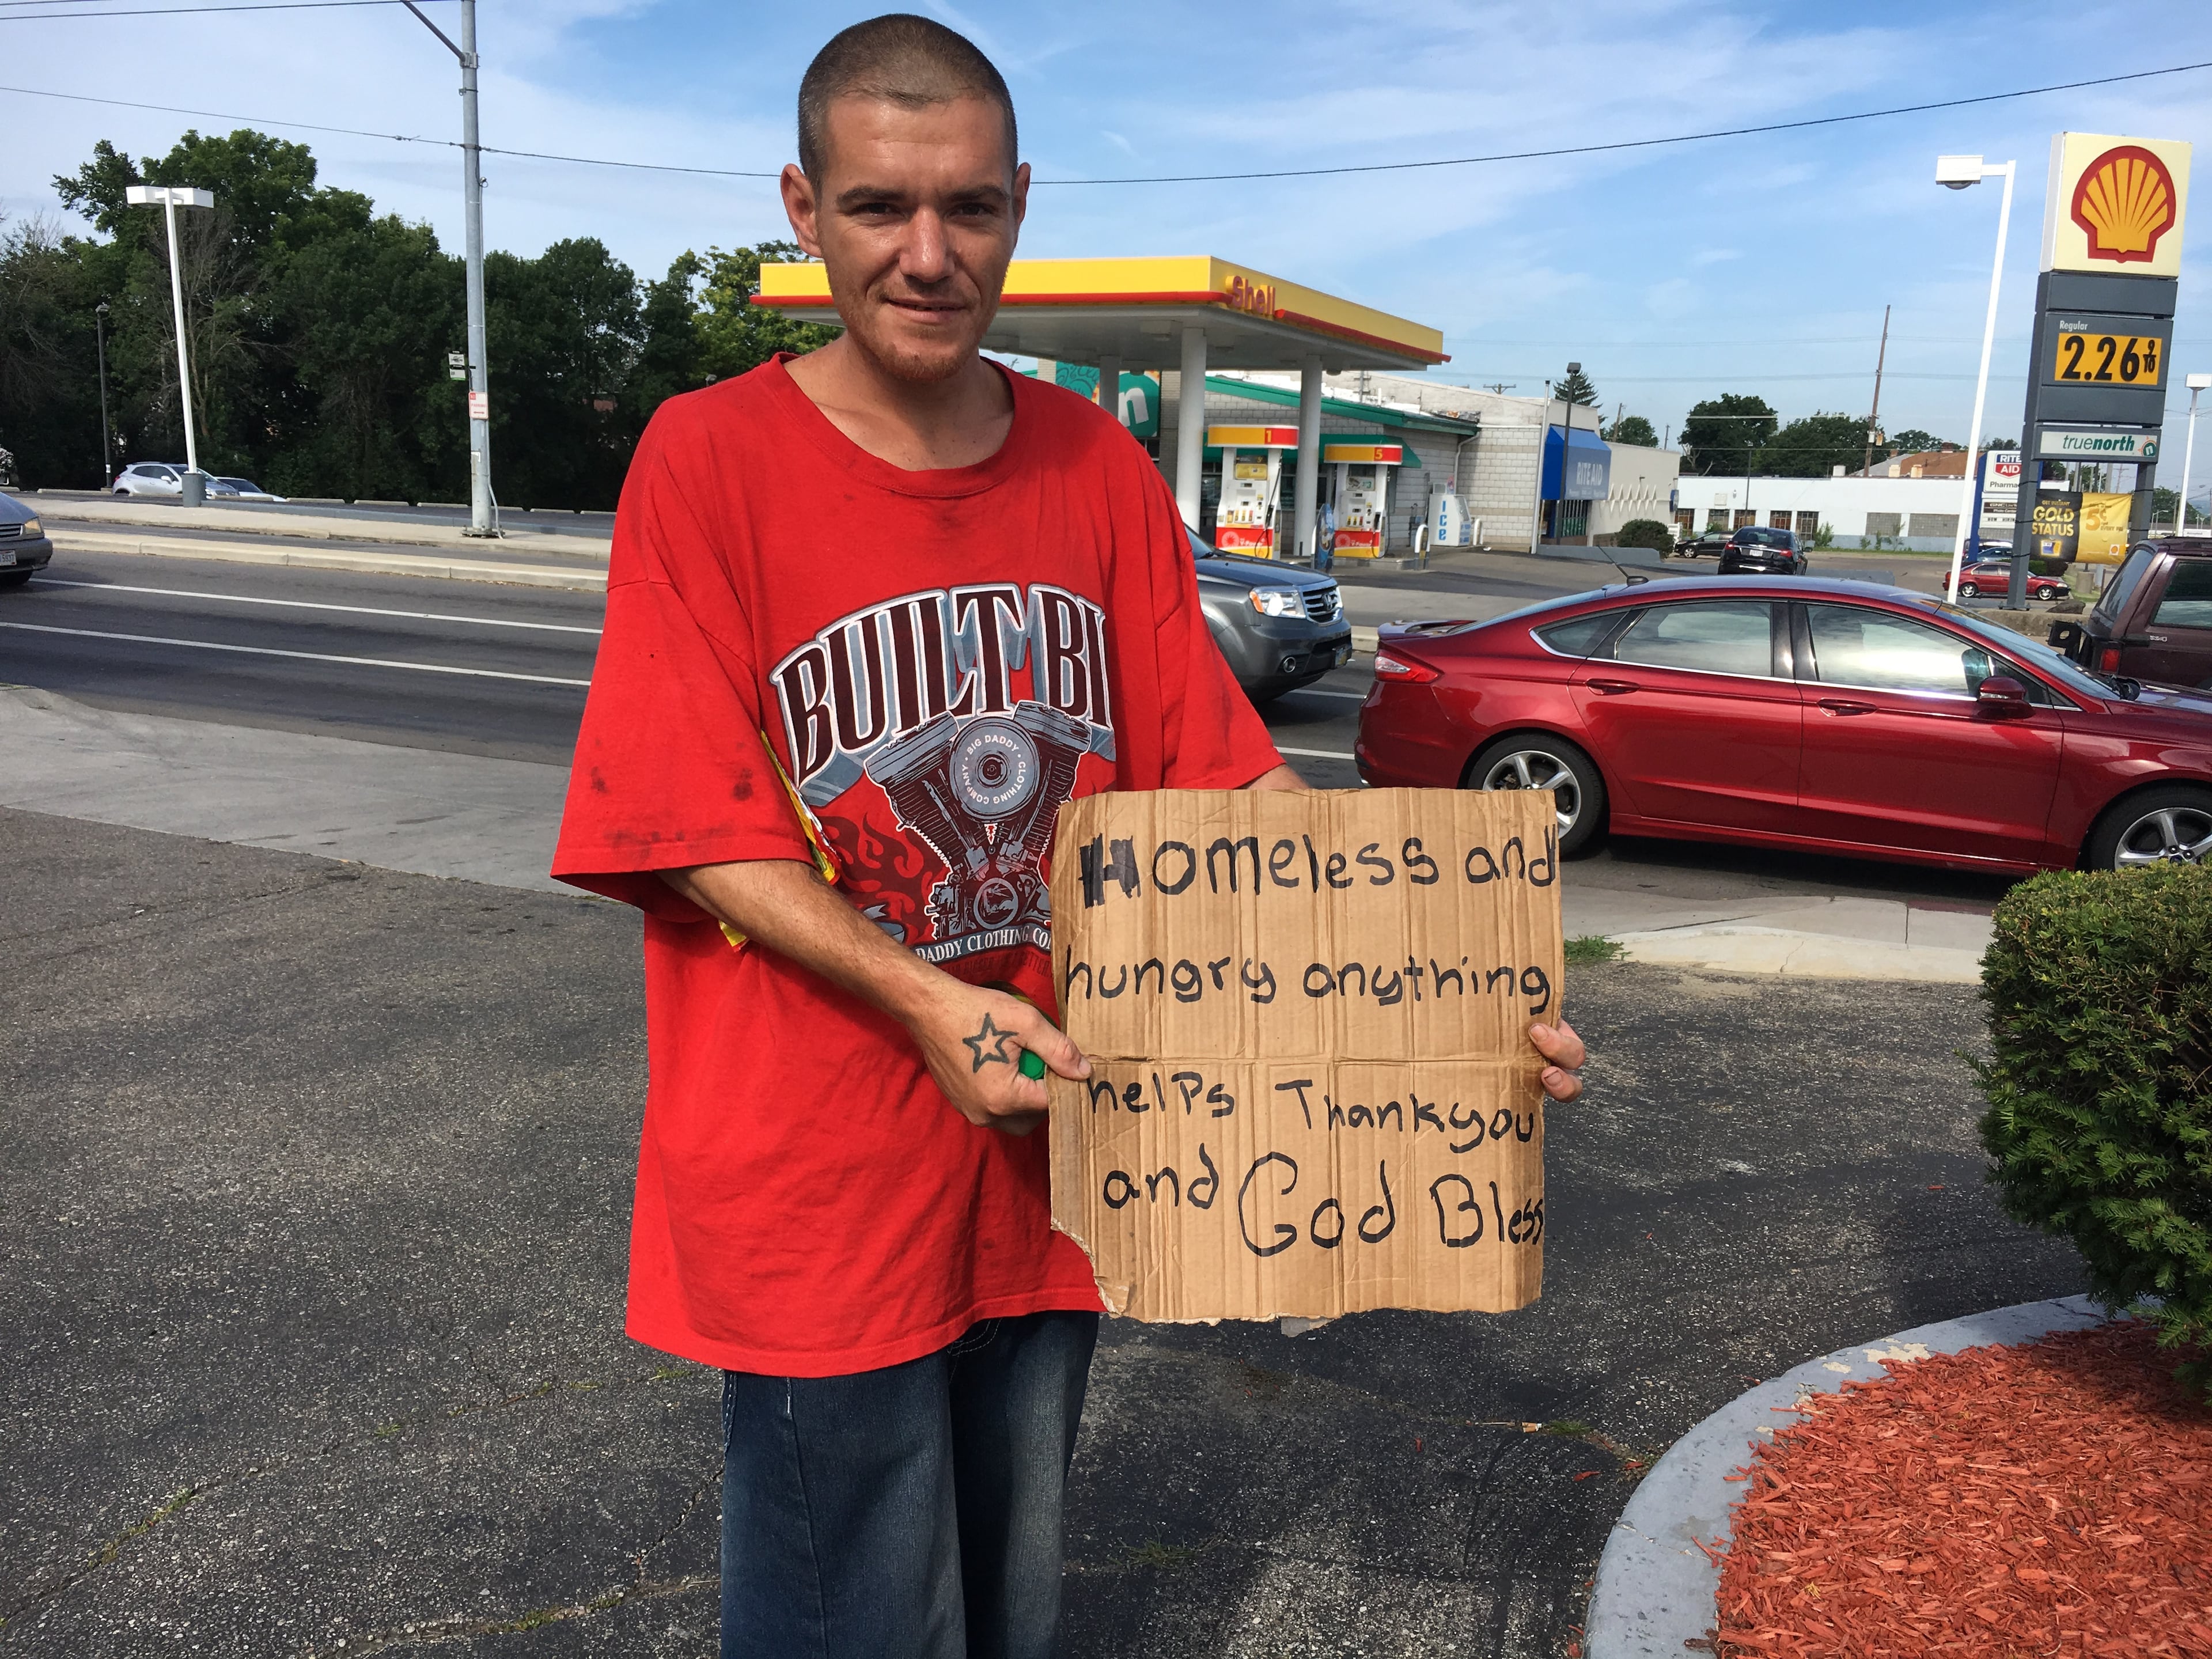 Shell
Regular
2.26 9/10
truenorth
RITE AID
RITE
AID
Pharma
GOLD
STATUS
5¢
1
5
ICE
n
BUILT BI
BIG DADDY • CLOTHING COMPANY •
DADDY CLOTHING CO
Homeless and
hungry anything
helps Thankyou
and God Bless